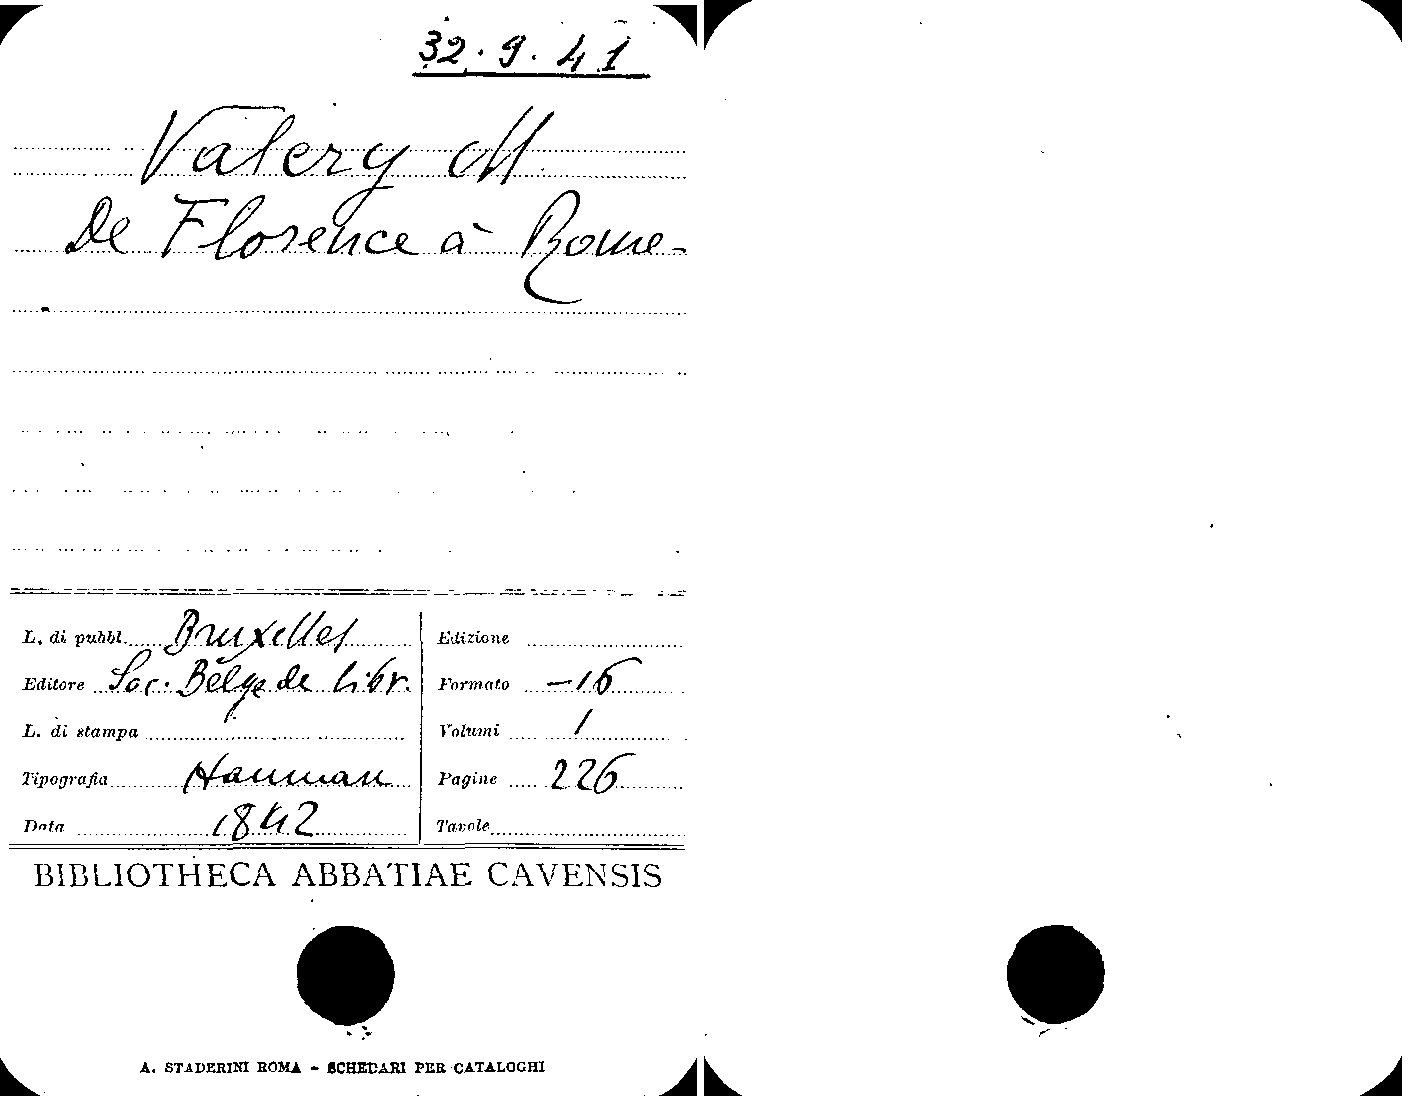 32.9.41
Valery M
De Florence à Rome-
L. di pubbl. Bruxelles
Editore Soc. Belge de libr.
L. di stampa
Tipografia Hauman
Data 1842
Edizione
Formato -16
Volumi 1
Pagine 226
Tavole
BIBLIOTHECA ABBATIAE CAVENSIS
A. STADERINI ROMA - SCHEDARI PER CATALOGHI